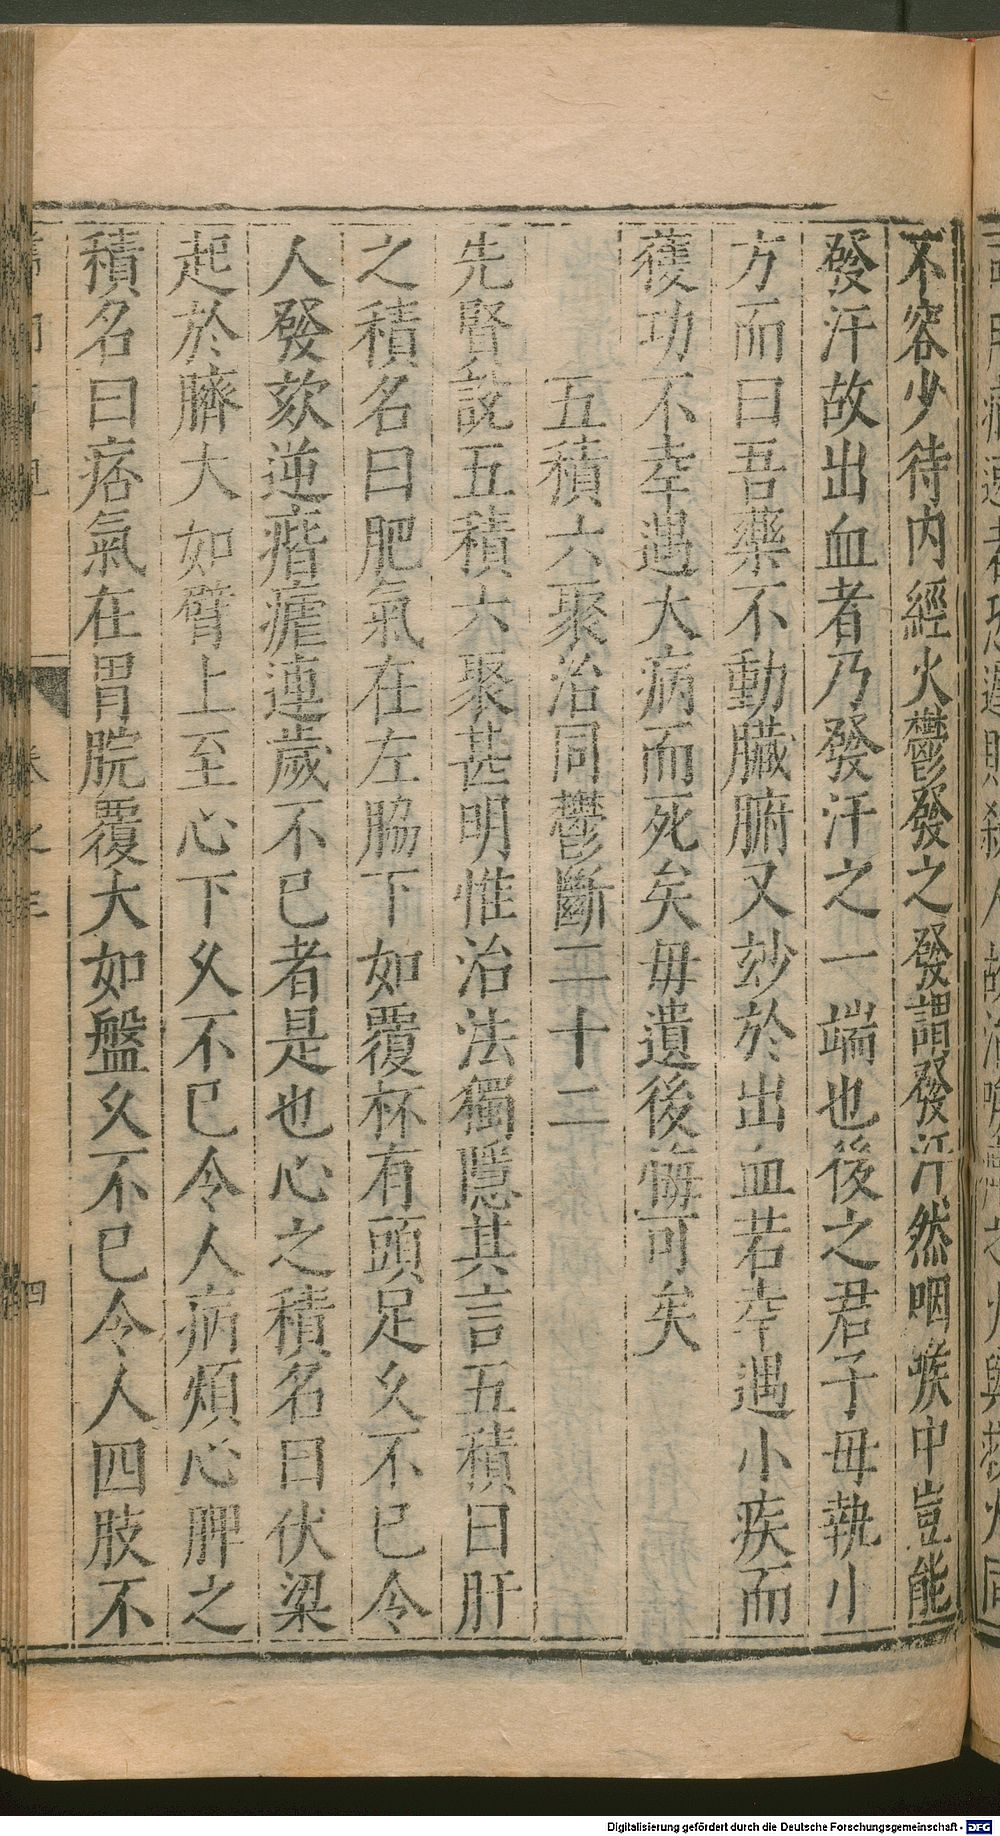 不容少待內經火鬱發之發謂發汗然咽喉中豈能
發汗故出血者乃發汗之一端也後之君子毋執小
方而曰吾藥不動臟腑又玅於出血若幸遇小疾而
獲功不幸遇大病而死矣毋遺後悔可矣
五積六聚治同鬱斷二十二
先賢說五積六聚甚明惟治法獨隱其言五積曰肝
之積名曰肥氣在左脇下如覆杯有頭足久不已令
人發欬逆痎瘧連歲不已者是也心之積名曰伏梁
起於臍大如臂上至心下久不已令人病煩心脾之
積名曰痞氣在胃脘覆大如盤久不已令人四肢不
卷之三
四
Digitalisierung gefördert durch die Deutsche Forschungsgemeinschaft - DFG